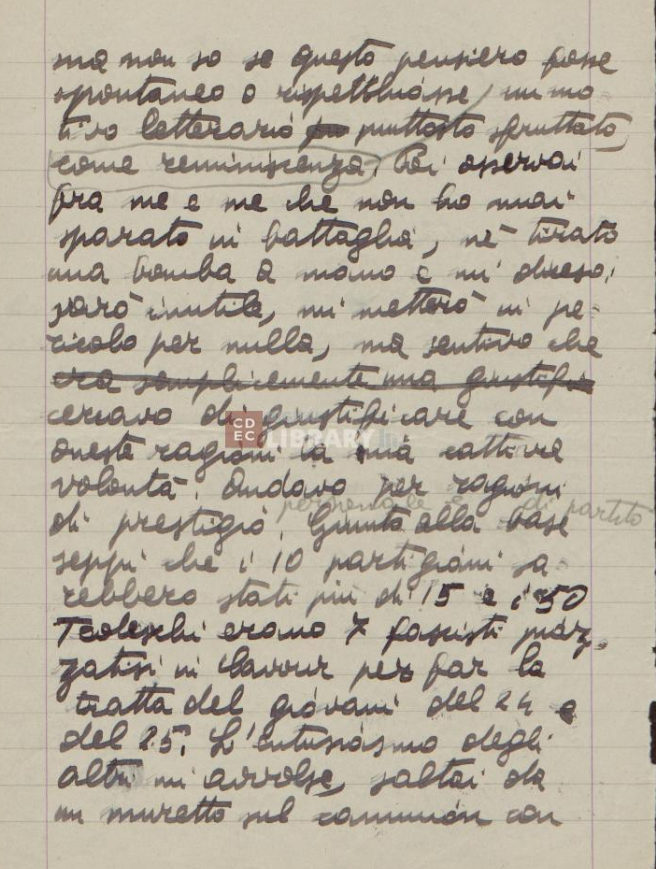 ma non so se questo pensiero fosse
spontaneo o rispettasse, un mo
tivo letterario piuttosto sfruttato,
come reminiscenza. Poi osservai
fra me e me che non ho mai
sparato in battaglia, nè tirato
una bomba a mano e mi dicevo:
sarò inutile, mi metterò in pe-
ricolo per nulla, ma sentivo che
era semplicemente una giustifi
cercavo di giustificare con
queste ragioni la mia cattiva
volontà. Andavo per ragioni
personale e di partito
di prestigio. Giunta alla base
seppi che i 10 partigiani sa
rebbero stati più di 15 e i 50
Tedeschi erano 7 fascisti piaz-
zatisi in Cavour per far la
tratta del giovani del 24 e
del 25. L'entusiasmo degli
altri mi avvolse, saltai da
un muretto sul camion con
CDEC LIBRARY.it